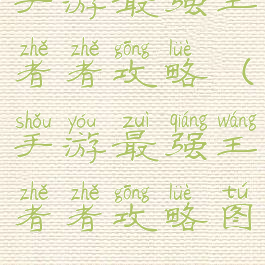 手游最强王
zhě zhě gōng lüè
者者攻略（
shǒu yóu zuì qiáng wáng
手游最强王
zhě zhě gōng lüè tú
者者攻略图